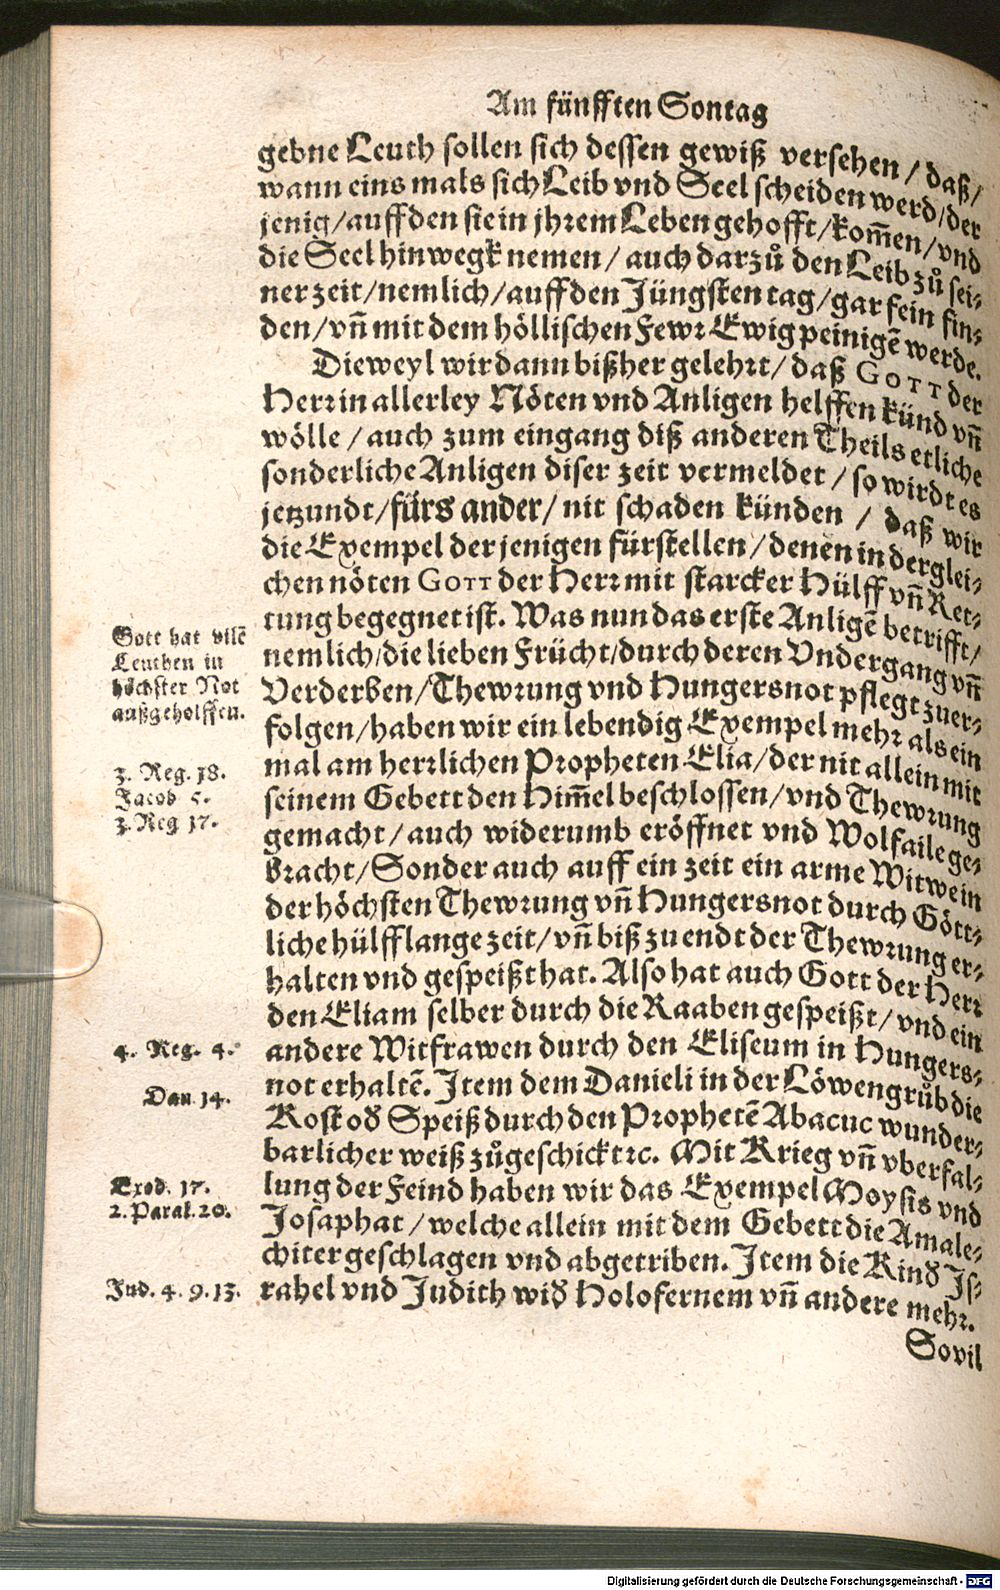 Am fünfften Sontag
gebne Leuth sollen sich dessen gewiß versehen / daß /
wann eins mals sich Leib vnd Seel scheiden werd / der
jenig / auff den sie in jhrem Leben gehofft / kom̃en / vnd
die Seel hinwegk nemen / auch darzů den Leib zů sei-
ner zeit / nemlich / auff den Jüngsten tag / gar fein fin-
den / vñ mit dem höllischen Fewr Ewig peinigẽ werde.
Dieweyl wir dann bißher gelehrt / daß GOTT der
Herr in allerley Nöten vnd Anligen helffen künd vñ
wölle / auch zum eingang diß anderen Theils etliche
sonderliche Anligen diser zeit vermeldet / so wirdt es
jetzundt / fürs ander / nit schaden künden / daß wir
die Exempel der jenigen fürstellen / denen in derglei-
chen nöten GOTT der Herr mit starcker Hülff vñ Ret-
tung begegnet ist. Was nun das erste Anligẽ betrifft /
nemlich / die lieben Frücht / durch deren Vndergang vñ
Verderben / Thewrung vnd Hungersnot pflegt zuer-
folgen / haben wir ein lebendig Exempel mehr als ein
mal am herrlichen Propheten Elia / der nit allein mit
seinem Gebett den Him̃el beschlossen / vnd Thewrung
gemacht / auch widerumb eröffnet vnd Wolfaile ge-
bracht / Sonder auch auff ein zeit ein arme Witwe in
der höchsten Thewrung vñ Hungersnot durch Gött-
liche hülff lange zeit / vñ biß zu endt der Thewrung er-
halten vnd gespeißt hat. Also hat auch Gott der Herr
den Eliam selber durch die Raaben gespeißt / vnd ein
andere Witfrawen durch den Eliseum in Hungers-
not erhaltẽ. Item dem Danieli in der Löwengrůb die
Kost oď Speiß durch den Prophetẽ Abacuc wunder-
barlicher weiß zůgeschickt ꝛc. Mit Krieg vñ vberfal-
lung der Feind haben wir das Exempel Moysis vnd
Josaphat / welche allein mit dem Gebett die Amale-
chiter geschlagen vnd abgetriben. Item die Kinď Is-
rahel vnd Judith wiď Holofernem vñ andere mehr.
Sovil
Gott hat vilẽ
Leuthen in
höchster Not
außgeholffen.
3. Reg. 18.
Jacob 5.
3. Reg 17.
4. Reg. 4.
Dan 14.
Exod. 17.
2. Paral. 20.
Jud. 4. 9. 13.
Digitalisierung gefördert durch die Deutsche Forschungsgemeinschaft - DFG